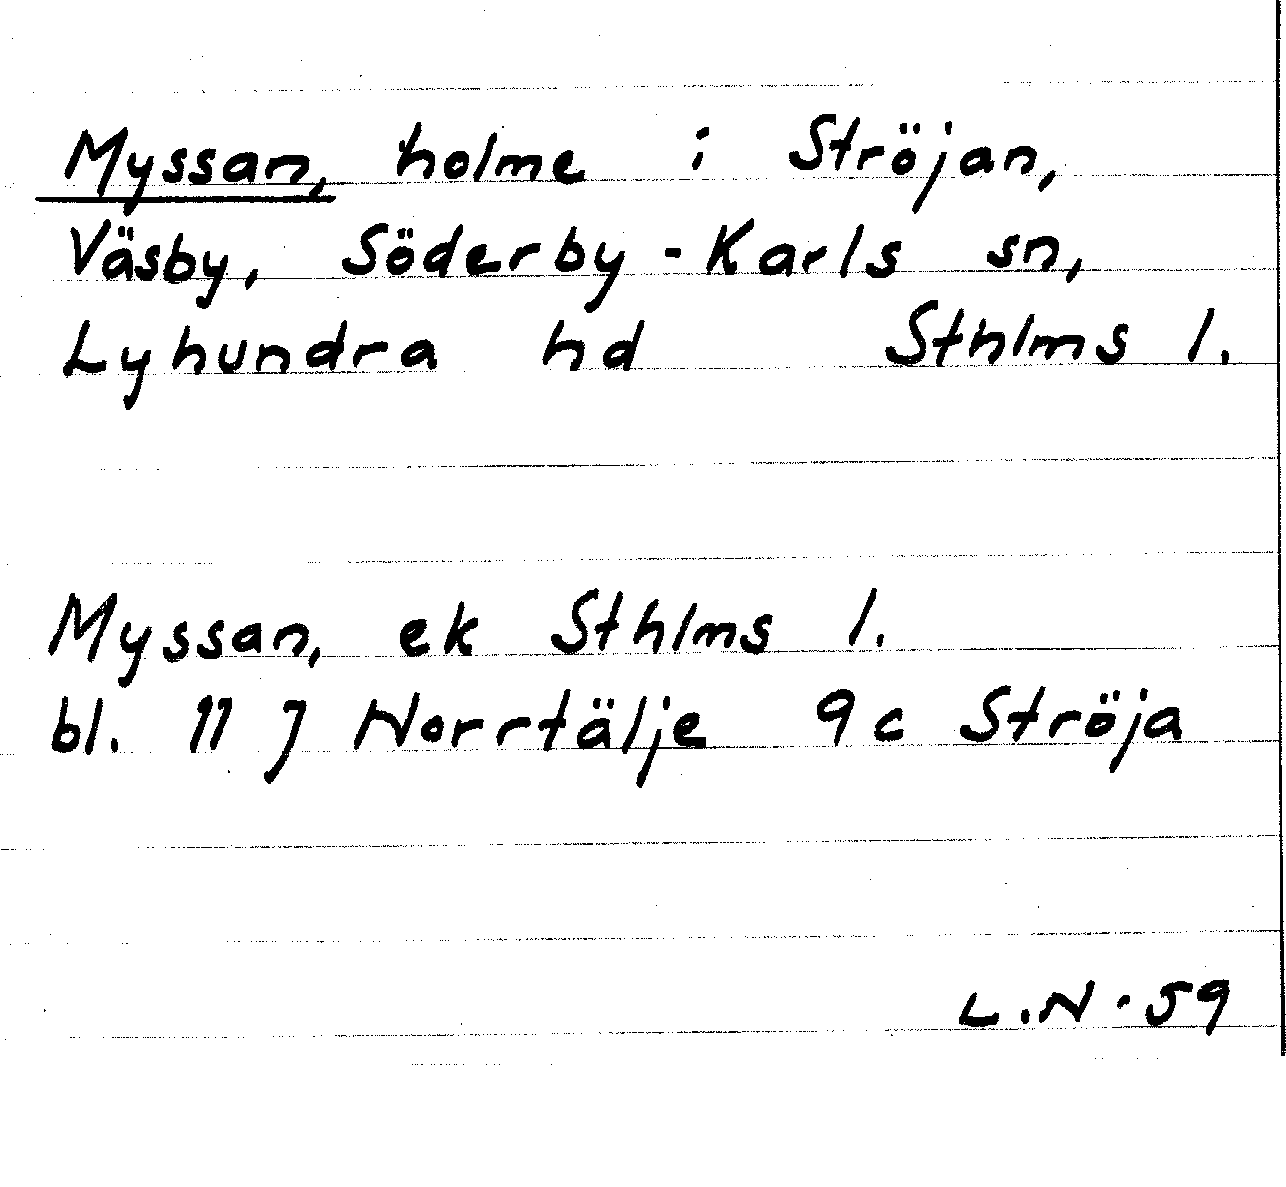 Myssan, holme i Ströjan,
Väsby, Söderby-Karls sn,
Lyhundra hd Sthlms l.
Myssan, ek Sthlms l.
bl. 11 J Norrtälje 9c Ströja
L.N. 59